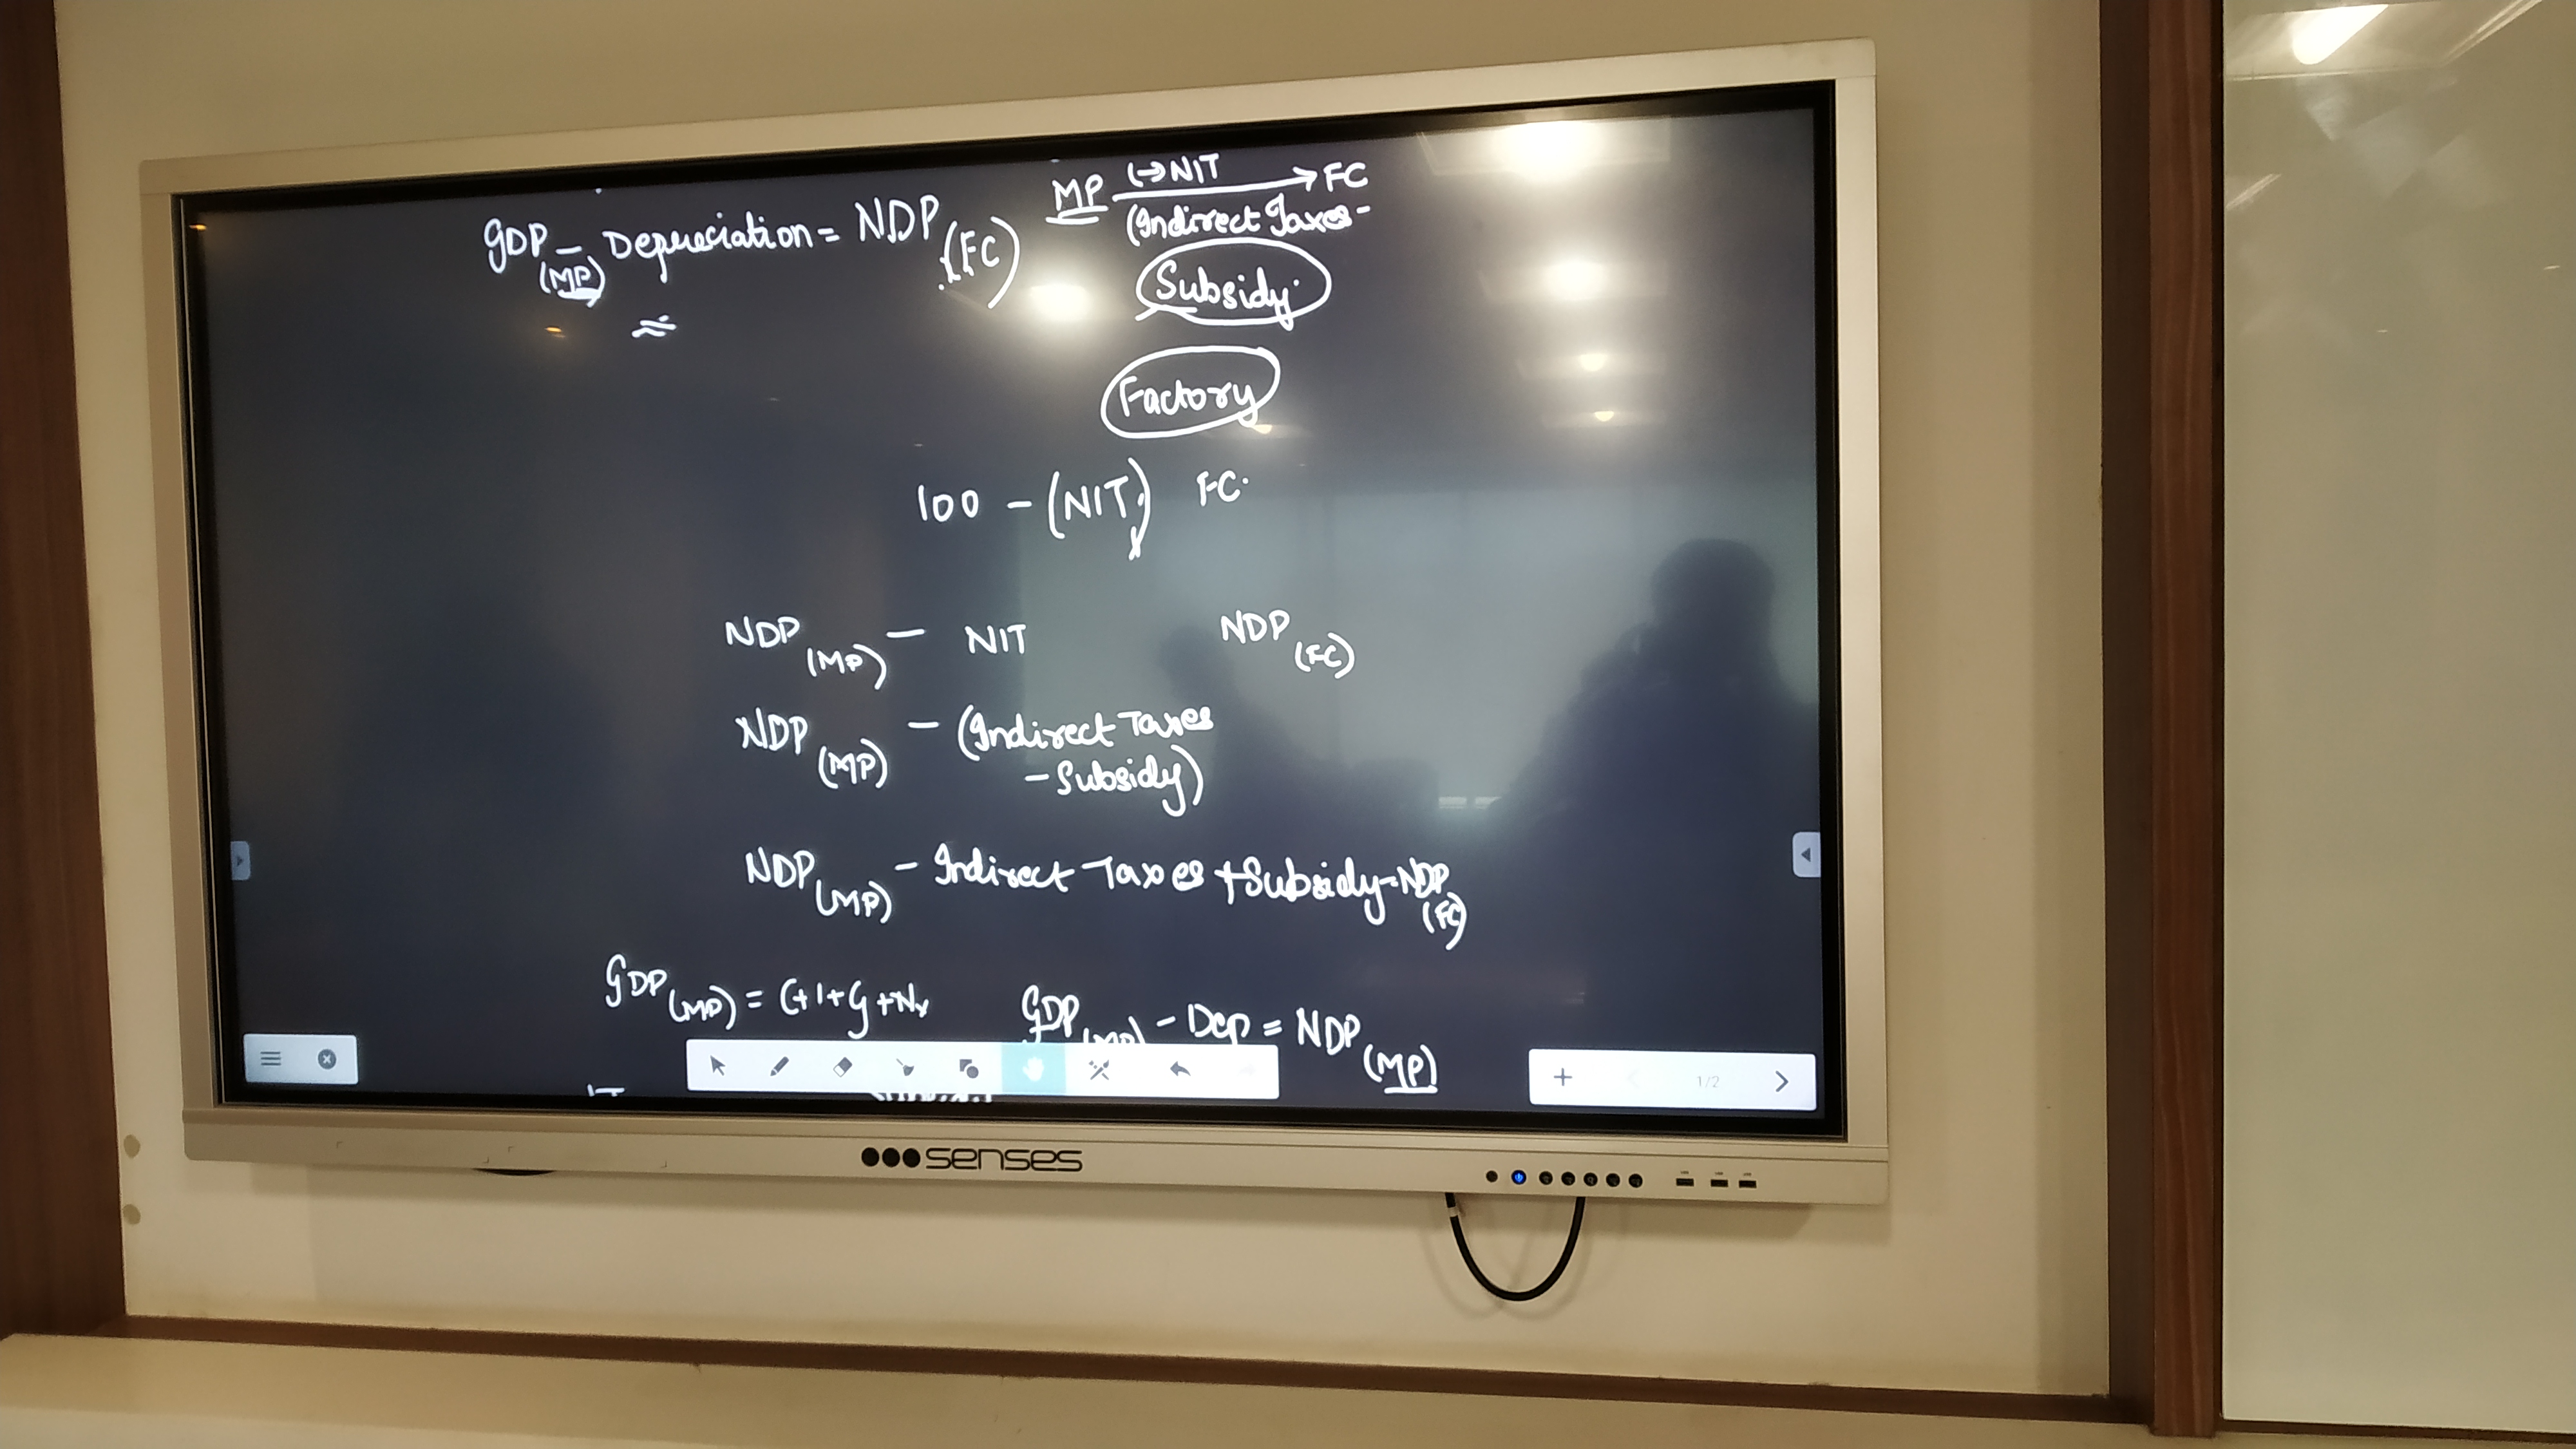 GDP(MP) - Depreciation = NDP(FC)
MP (-)NIT → FC
(Indirect Taxes -
Subsidy
Factory
100 - (NIT) FC
NDP(MP) - NIT NDP(FC)
NDP(MP) - (Indirect Taxes
- Subsidy)
NDP(MP) - Indirect Taxes + Subsidy = NDP(FC)
GDP(MP) = C+I+G+Nx
GDP(MP) - Dep = NDP(MP)
1/2
senses